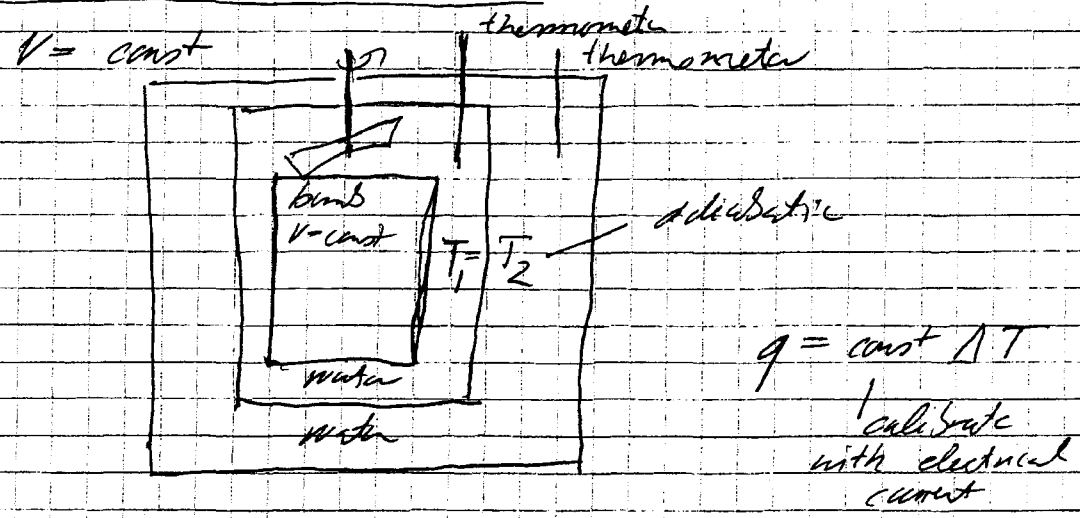 V = const
thermometer
thermometer
bomb
V=const
T₁ = T₂
adiabatic
water
water
q = const ΔT
calibrate
with electrical
current